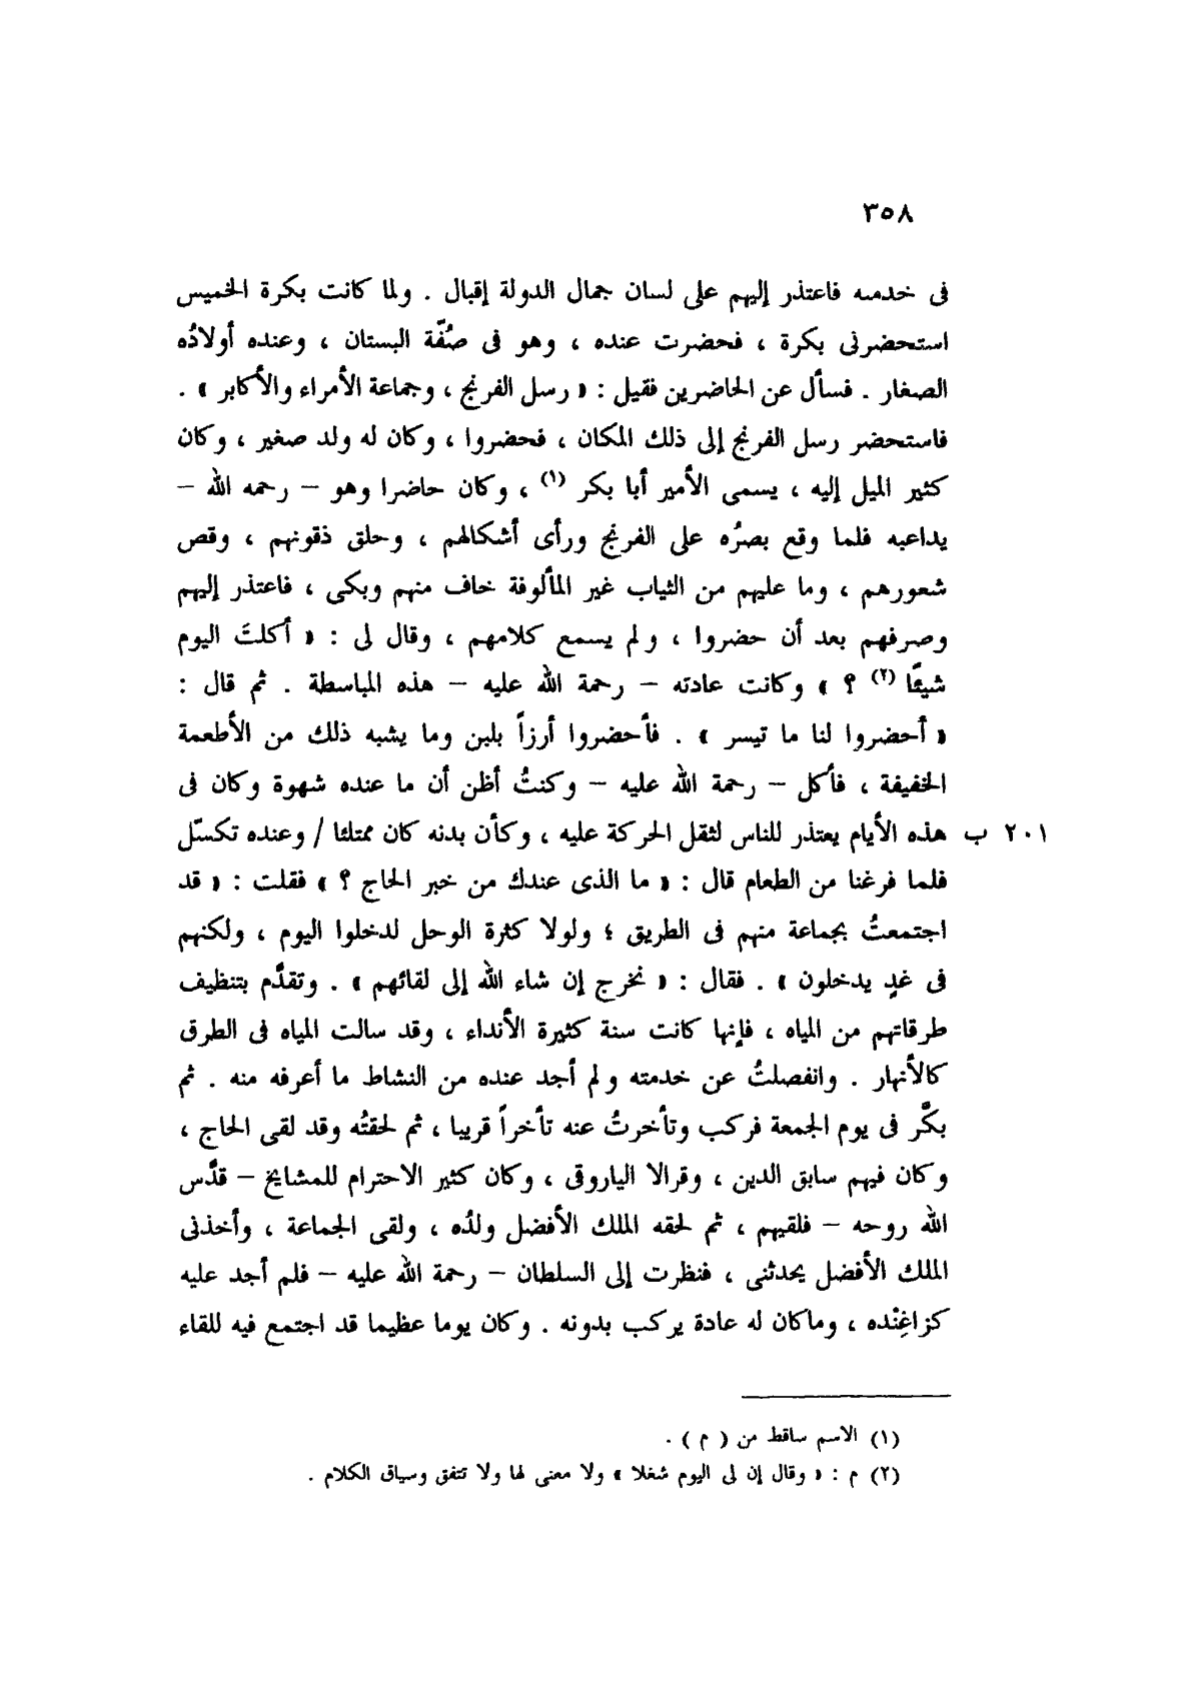 ٣٥٨
فى خدمته فاعتذر إليهم على لسان جمال الدولة إقبال . ولما كانت بكرة الخميس
استحضرنى بكرة ، فحضرت عنده ، وهو فى صُفّة البستان ، وعنده أولادُه
الصغار . فسأل عن الحاضرين فقيل : « رسل الفرنج ، وجماعة الأمراء والأكابر » .
فاستحضر رسل الفرنج إلى ذلك المكان ، فحضروا ، وكان له ولد صغير ، وكان
كثير الميل إليه ، يسمى الأمير أبا بكر (١) ، وكان حاضرا وهو – رحمه الله –
يداعبه فلما وقع بصرُه على الفرنج ورأى أشكالهم ، وحلق ذقونهم ، وقص
شعورهم ، وما عليهم من الثياب غير المألوفة خاف منهم وبكى ، فاعتذر إليهم
وصرفهم بعد أن حضروا ، ولم يسمع كلامهم ، وقال لى : « أكلتَ اليوم
شيئًا (٢) ؟ » وكانت عادته – رحمة الله عليه – هذه المباسطة . ثم قال :
« أحضروا لنا ما تيسر » . فأحضروا أرزاً بلبن وما يشبه ذلك من الأطعمة
الخفيفة ، فأكل – رحمة الله عليه – وكنتُ أظن أن ما عنده شهوة وكان فى
٢٠١ ب هذه الأيام يعتذر للناس لثقل الحركة عليه ، وكأن بدنه كان ممتلئا / وعنده تكسّل
فلما فرغنا من الطعام قال : « ما الذى عندك من خبر الحاج ؟ » فقلت : « قد
اجتمعتُ بجماعة منهم فى الطريق ؛ ولولا كثرة الوحل لدخلوا اليوم ، ولكنهم
فى غدٍ يدخلون » . فقال : « نخرج إن شاء الله إلى لقائهم » . وتقدَّم بتنظيف
طرقاتهم من المياه ، فإنها كانت سنة كثيرة الأنداء ، وقد سالت المياه فى الطرق
كالأنهار . وانفصلتُ عن خدمته ولم أجد عنده من النشاط ما أعرفه منه . ثم
بكَّر فى يوم الجمعة فركب وتأخرتُ عنه تأخراً قريبا ، ثم لحقتُه وقد لقى الحاج ،
وكان فيهم سابق الدين ، وقرالا الياروقى ، وكان كثير الاحترام للمشايخ – قدَّس
الله روحه – فلقيهم ، ثم لحقه الملك الأفضل ولدُه ، ولقى الجماعة ، وأخذنى
الملك الأفضل يحدثنى ، فنظرت إلى السلطان – رحمة الله عليه – فلم أجد عليه
كزاغِنْده ، وماكان له عادة يركب بدونه . وكان يوما عظيما قد اجتمع فيه للقاء
(١) الاسم ساقط من ( م ) .
(٢) م : « وقال إن لى اليوم شغلا » ولا معنى لها ولا تتفق وسياق الكلام .